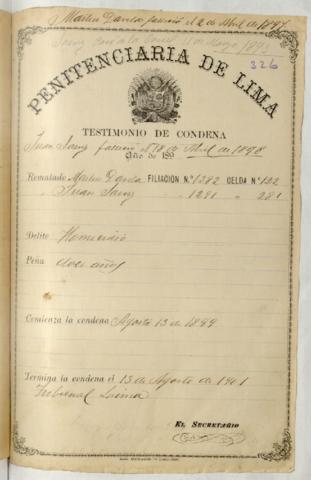 Martin Davila falleció el 2 de Abril de 1897
326
PENITENCIARIA DE LIMA
TESTIMONIO DE CONDENA
Juan Saenz falleció el 18 de Abril de 1898
Año de 189
Rematado Martin Davila FILIACION N.º 1282 CELDA N.º 122
" Juan Saenz 1291 " 281
Delito Homicidio
Pena doce años
Comienza la condena Agosto 13 de 1889
Termina la condena el 13 de Agosto de 1901
Tribunal Lima
EL SECRETARIO